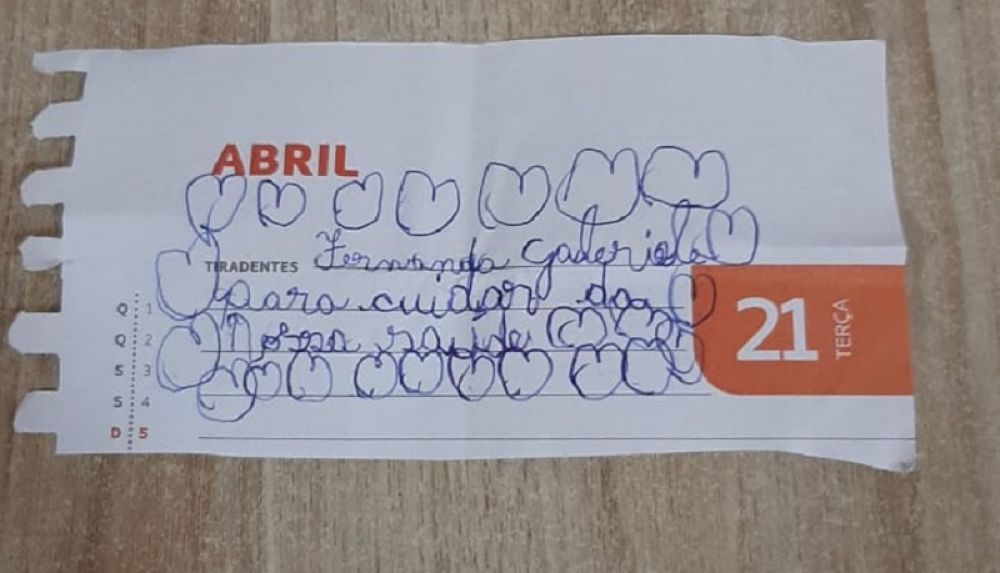 ABRIL
TIRADENTES Fernanda Gaderiela
para cuidar da
Nossa saúde
21 TERÇA
Q 1
Q 2
S 3
S 4
D 5